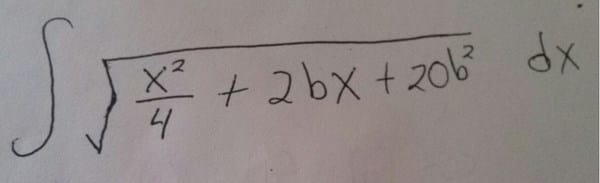 ∫ √(x²/4 + 2bx + 20b²) dx